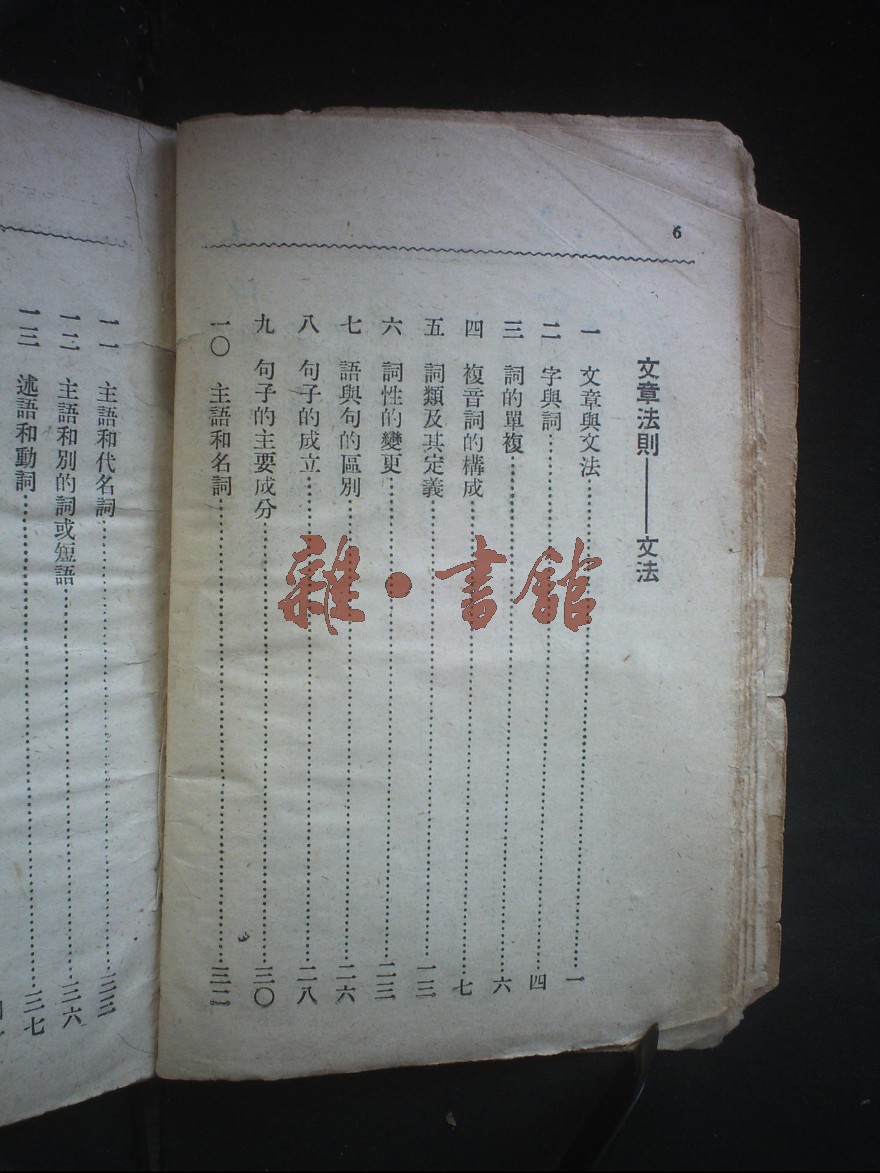 6
文章法則——文法
一 文章與文法……一
二 字與詞……四
三 詞的單複……六
四 複音詞的構成……七
五 詞類及其定義……一三
六 詞性的變更……二三
七 語與句的區別……二六
八 句子的成立……二八
九 句子的主要成分……三〇
一〇 主語和名詞……三二
一一 主語和代名詞……三三
一二 主語和別的詞或短語……三六
一三 述語和動詞……三七
雜·書館